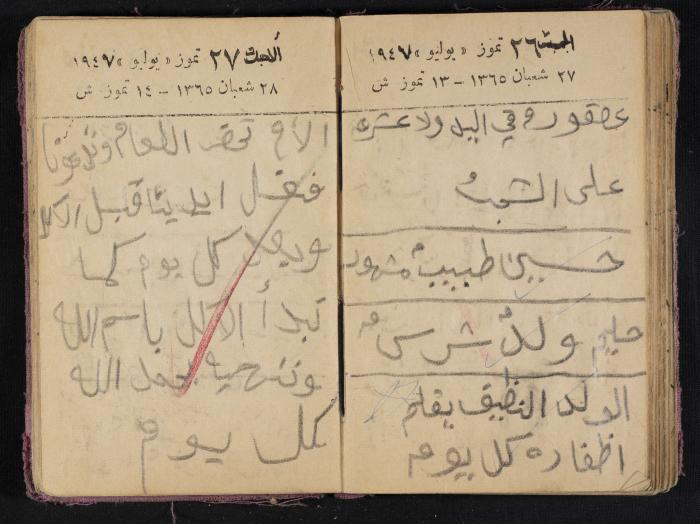 السبت ٢٦ تموز «يوليو» ١٩٤٧
٢٧ شعبان ١٣٦٥ - ١٣ تموز ش
عصفوره في اليد ولا عشره
على الشجره
حسين طبيب مشهود
حليم ولد شرس
الولد النظيف يقلم
اظفاره كل يوم
الاحد ٢٧ تموز «يوليو» ١٩٤٧
٢٨ شعبان ١٣٦٥ - ١٤ تموز ش
الأم تحضر الطعام وتدعونا
فنغسل ايدينا قبل الاكل
كل يوم كما
نبدأ الاكل باسم الله
وننهيه بحمد الله
كل يوم